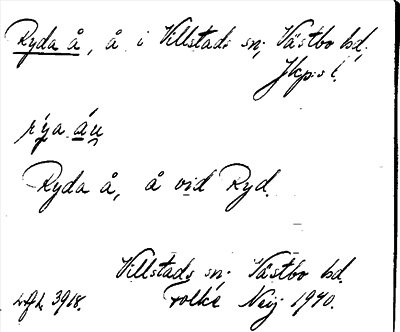 Ryda å, å i Villstads sn; Västbo hd,
Jkps l.
rýa áu
Ryda å, å vid Ryd.
Villstads sn; Västbo hd.
3918. Folke Neij 1940.